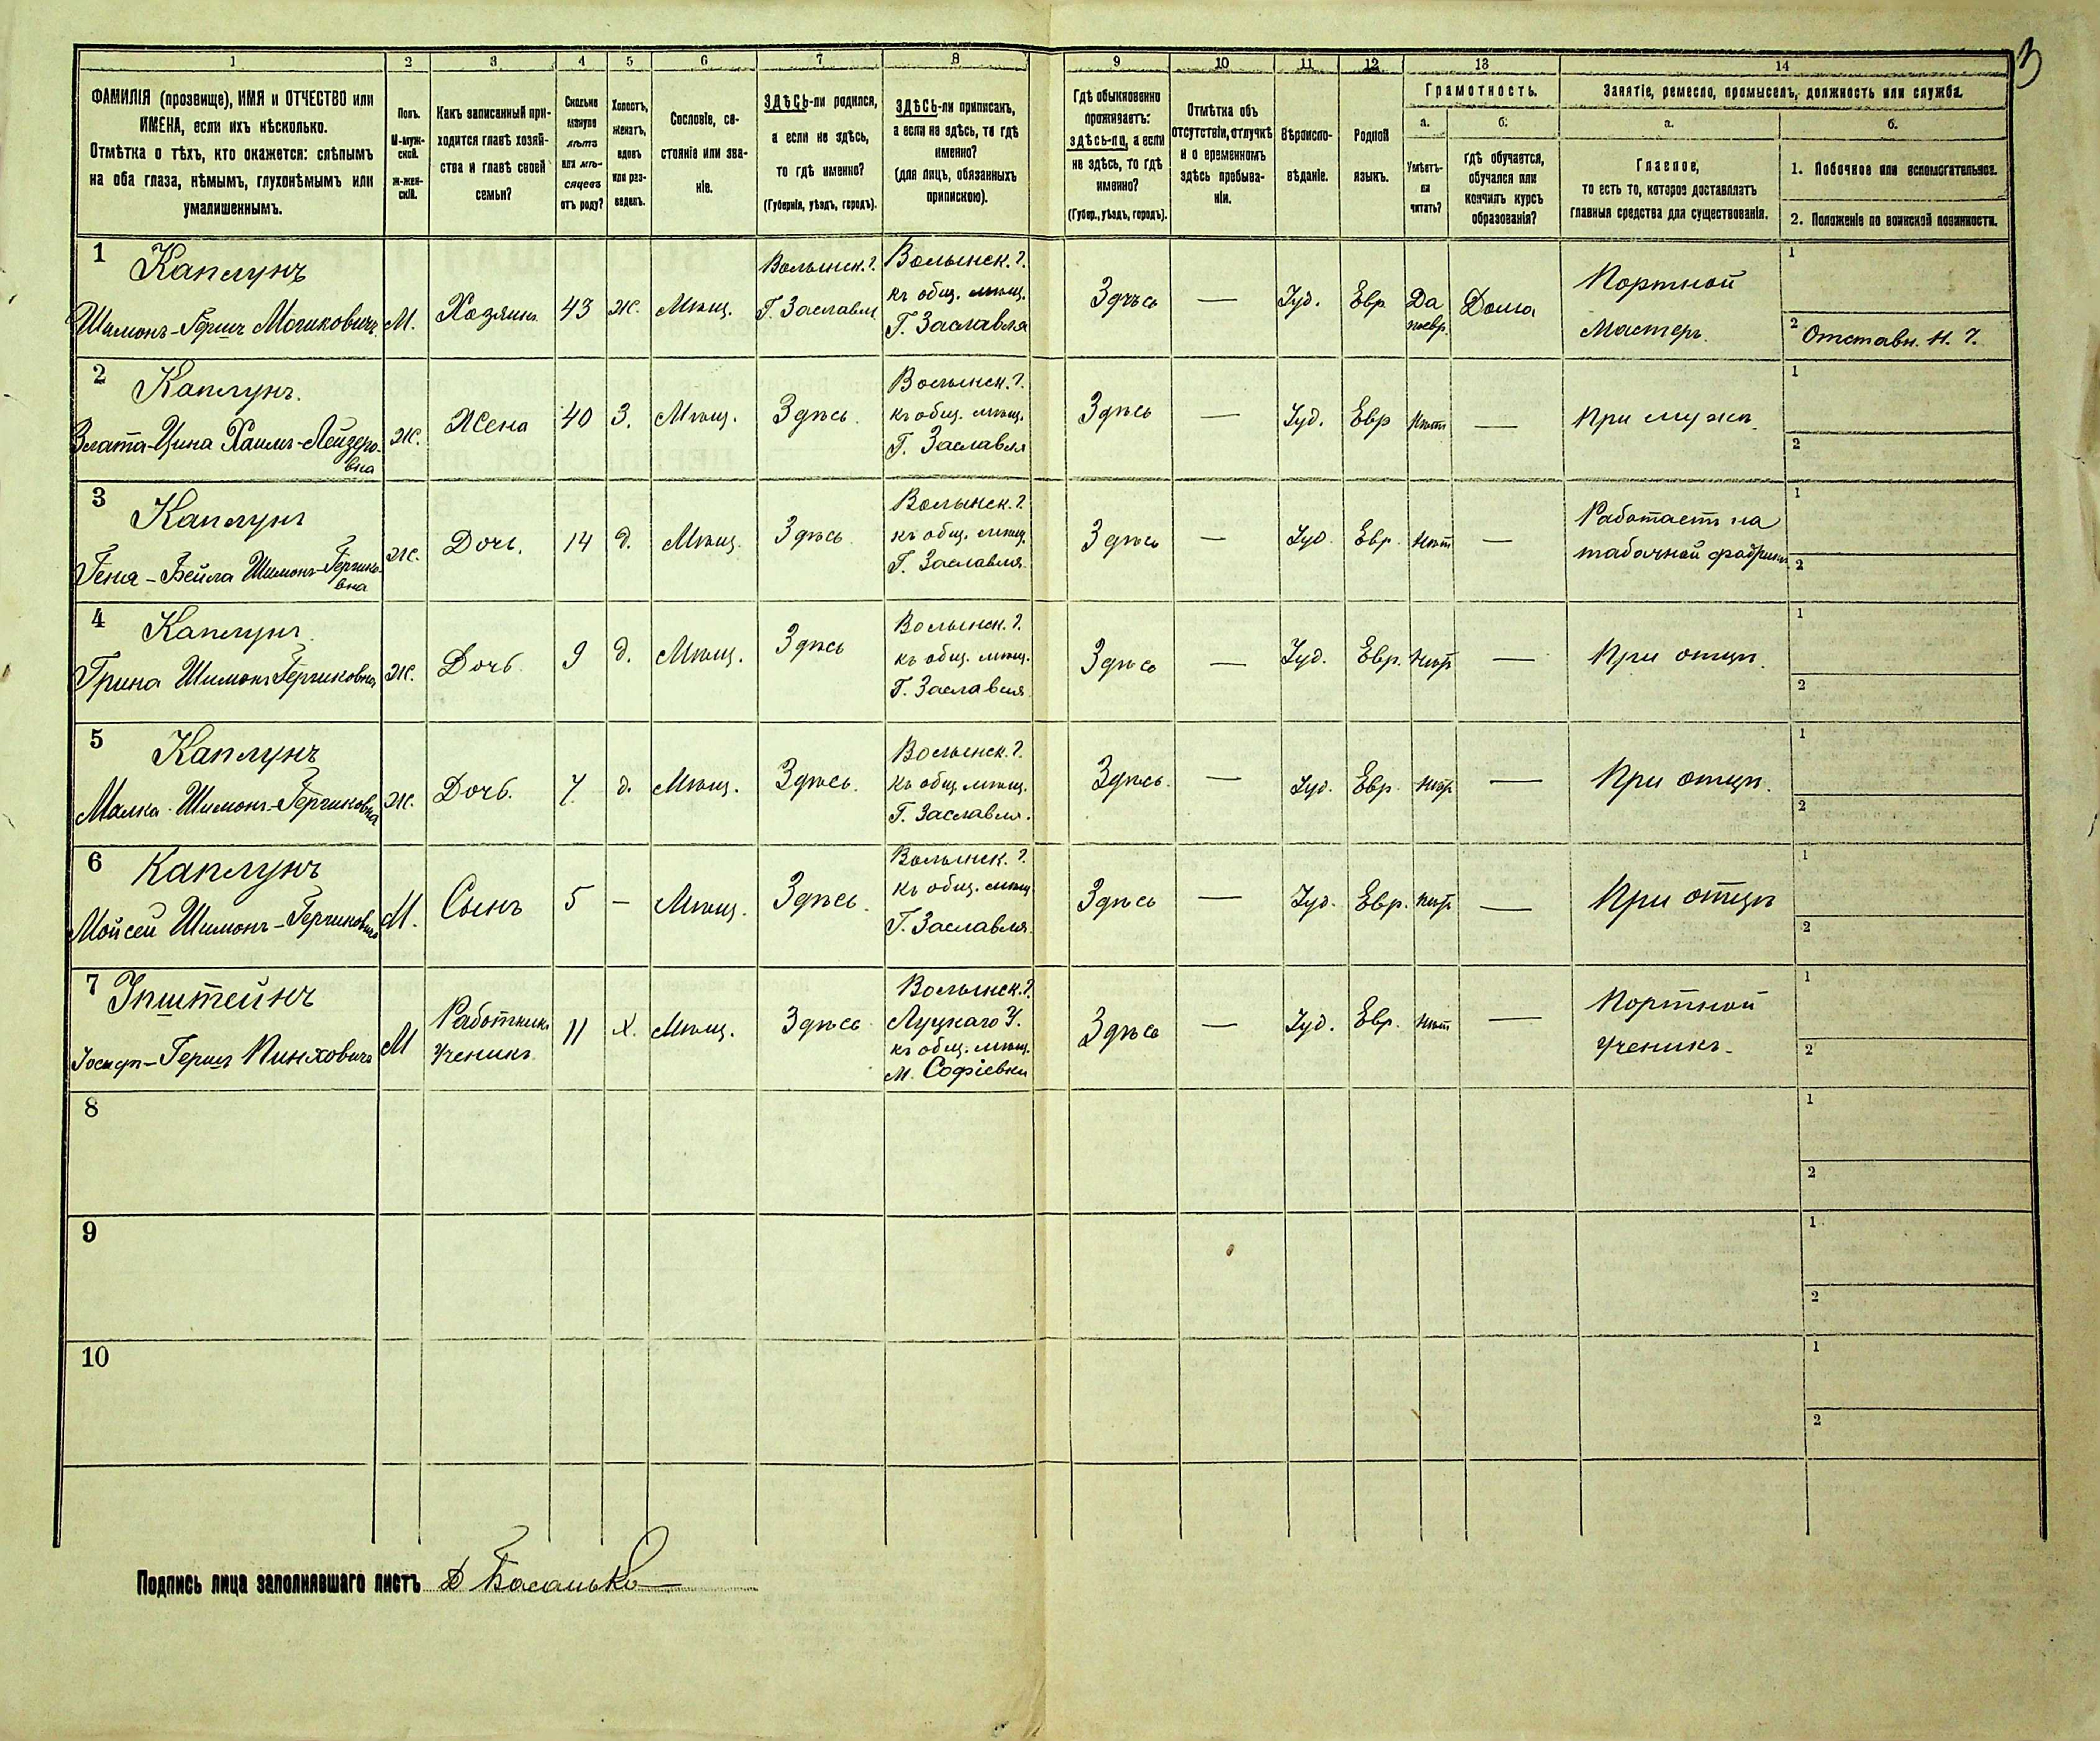 3
1 2 3 4 5 6 7 8 9 10 11 12 13 14
ФАМИЛІЯ (прозвище), ИМЯ и ОТЧЕСТВО или
ИМЕНА, если ихъ нѣсколько.
Отмѣтка о тѣхъ, кто окажется: слѣпымъ
на оба глаза, нѣмымъ, глухонѣмымъ или
умалишеннымъ.
Полъ.
М-муж-
ской.
Ж-жен-
скій.
Какъ записанный при-
ходится главѣ хозяй-
ства и главѣ своей
семьи?
Сколько
минуло
лѣтъ
или мѣ-
сяцевъ
отъ роду?
Холостъ,
женатъ,
вдовъ
или раз-
веденъ.
Сословіе, со-
стояніе или зва-
ніе.
ЗДѢСЬ-ли родился,
а если не здѣсь,
то гдѣ именно?
(Губернія, уѣздъ, городъ).
ЗДѢСЬ-ли приписанъ,
а если не здѣсь, то гдѣ
именно?
(для лицъ, обязанныхъ
припискою).
Гдѣ обыкновенно
проживаетъ:
здѣсь-ли, а если
не здѣсь, то гдѣ
именно?
(Губер., уѣздъ, городъ).
Отмѣтка объ
отсутствіи, отлучкѣ
и о временномъ
здѣсь пребыва-
ніи.
Вѣроиспо-
вѣданіе.
Родной
языкъ.
Грамотность.
а.
Умѣетъ-
ли
читать?
б.
гдѣ обучается,
обучался или
кончилъ курсъ
образованія?
Занятіе, ремесло, промыселъ, должность или служба.
а.
Главное,
то есть то, которое доставляетъ
главныя средства для существованія.
б.
1. Побочное или вспомогательное.
2. Положеніе по воинской повинности.
1 Каплунъ
Шимонъ-Гершъ Мошковичъ
М.
Хозяинъ
43
ж.
Мѣщ.
Волынск. г.
Г. Заславля
Волынск. г.
къ общ. мѣщ.
Г. Заславля
Здѣсь
—
Іуд.
Евр
Да
поевр.
Дома
Портной
Мастеръ.
1
2 Отставн. Н. Ч.
2 Каплунъ.
Злата-Цина Хаимъ-Лейзеро-
вна
ж.
Жена
40
З.
Мѣщ.
Здѣсь.
Волынск. г.
къ общ. мѣщ.
Г. Заславля
Здѣсь
—
Іуд.
Евр
Нѣт
—
При мужѣ.
1
2
3 Каплунъ
Геня-Бейла Шимонъ-Гершко-
вна
ж.
Дочь.
14
д.
Мѣщ.
Здѣсь
Волынск. г.
къ общ. мѣщ.
Г. Заславля.
Здѣсь
—
Іуд.
Евр.
Нѣт
—
Работаетъ на
табачной фабрикѣ
1
2
4 Каплунъ.
Грина Шимонъ Гершковна
ж.
Дочь
9
д.
Мѣщ.
Здѣсь
Волынск. г.
къ общ. мѣщ.
Г. Заславля
Здѣсь
—
Іуд.
Евр.
Нѣт
—
При отцѣ.
1
2
5 Каплунъ
Малка Шимонъ-Гершковна
ж.
Дочь.
7
д.
Мѣщ.
Здѣсь.
Волынск. г.
къ общ. мѣщ.
Г. Заславля.
Здѣсь.
—
Іуд.
Евр
Нѣт
—
При отцѣ.
1
2
6 Каплунъ
Мойсей Шимонъ-Гершковичъ
М.
Сынъ
5
—
Мѣщ.
Здѣсь.
Волынск. г.
къ общ. мѣщ
Г. Заславля.
Здѣсь
—
Іуд.
Евр.
Нѣт
—
При отцѣ
1
2
7 Эпштейнъ
Іосифъ-Гершъ Пинховичъ
М
Работникъ
ученикъ
11
Х.
Мѣщ.
Здѣсь
Волынск. г.
Луцкаго У.
къ общ. мѣщ.
М. Софіевки
Здѣсь
—
Іуд.
Евр.
Нѣт
—
Портной
ученикъ.
1
2
8
1
2
9
1
2
10
1
2
Подпись лица заполнявшаго листъ